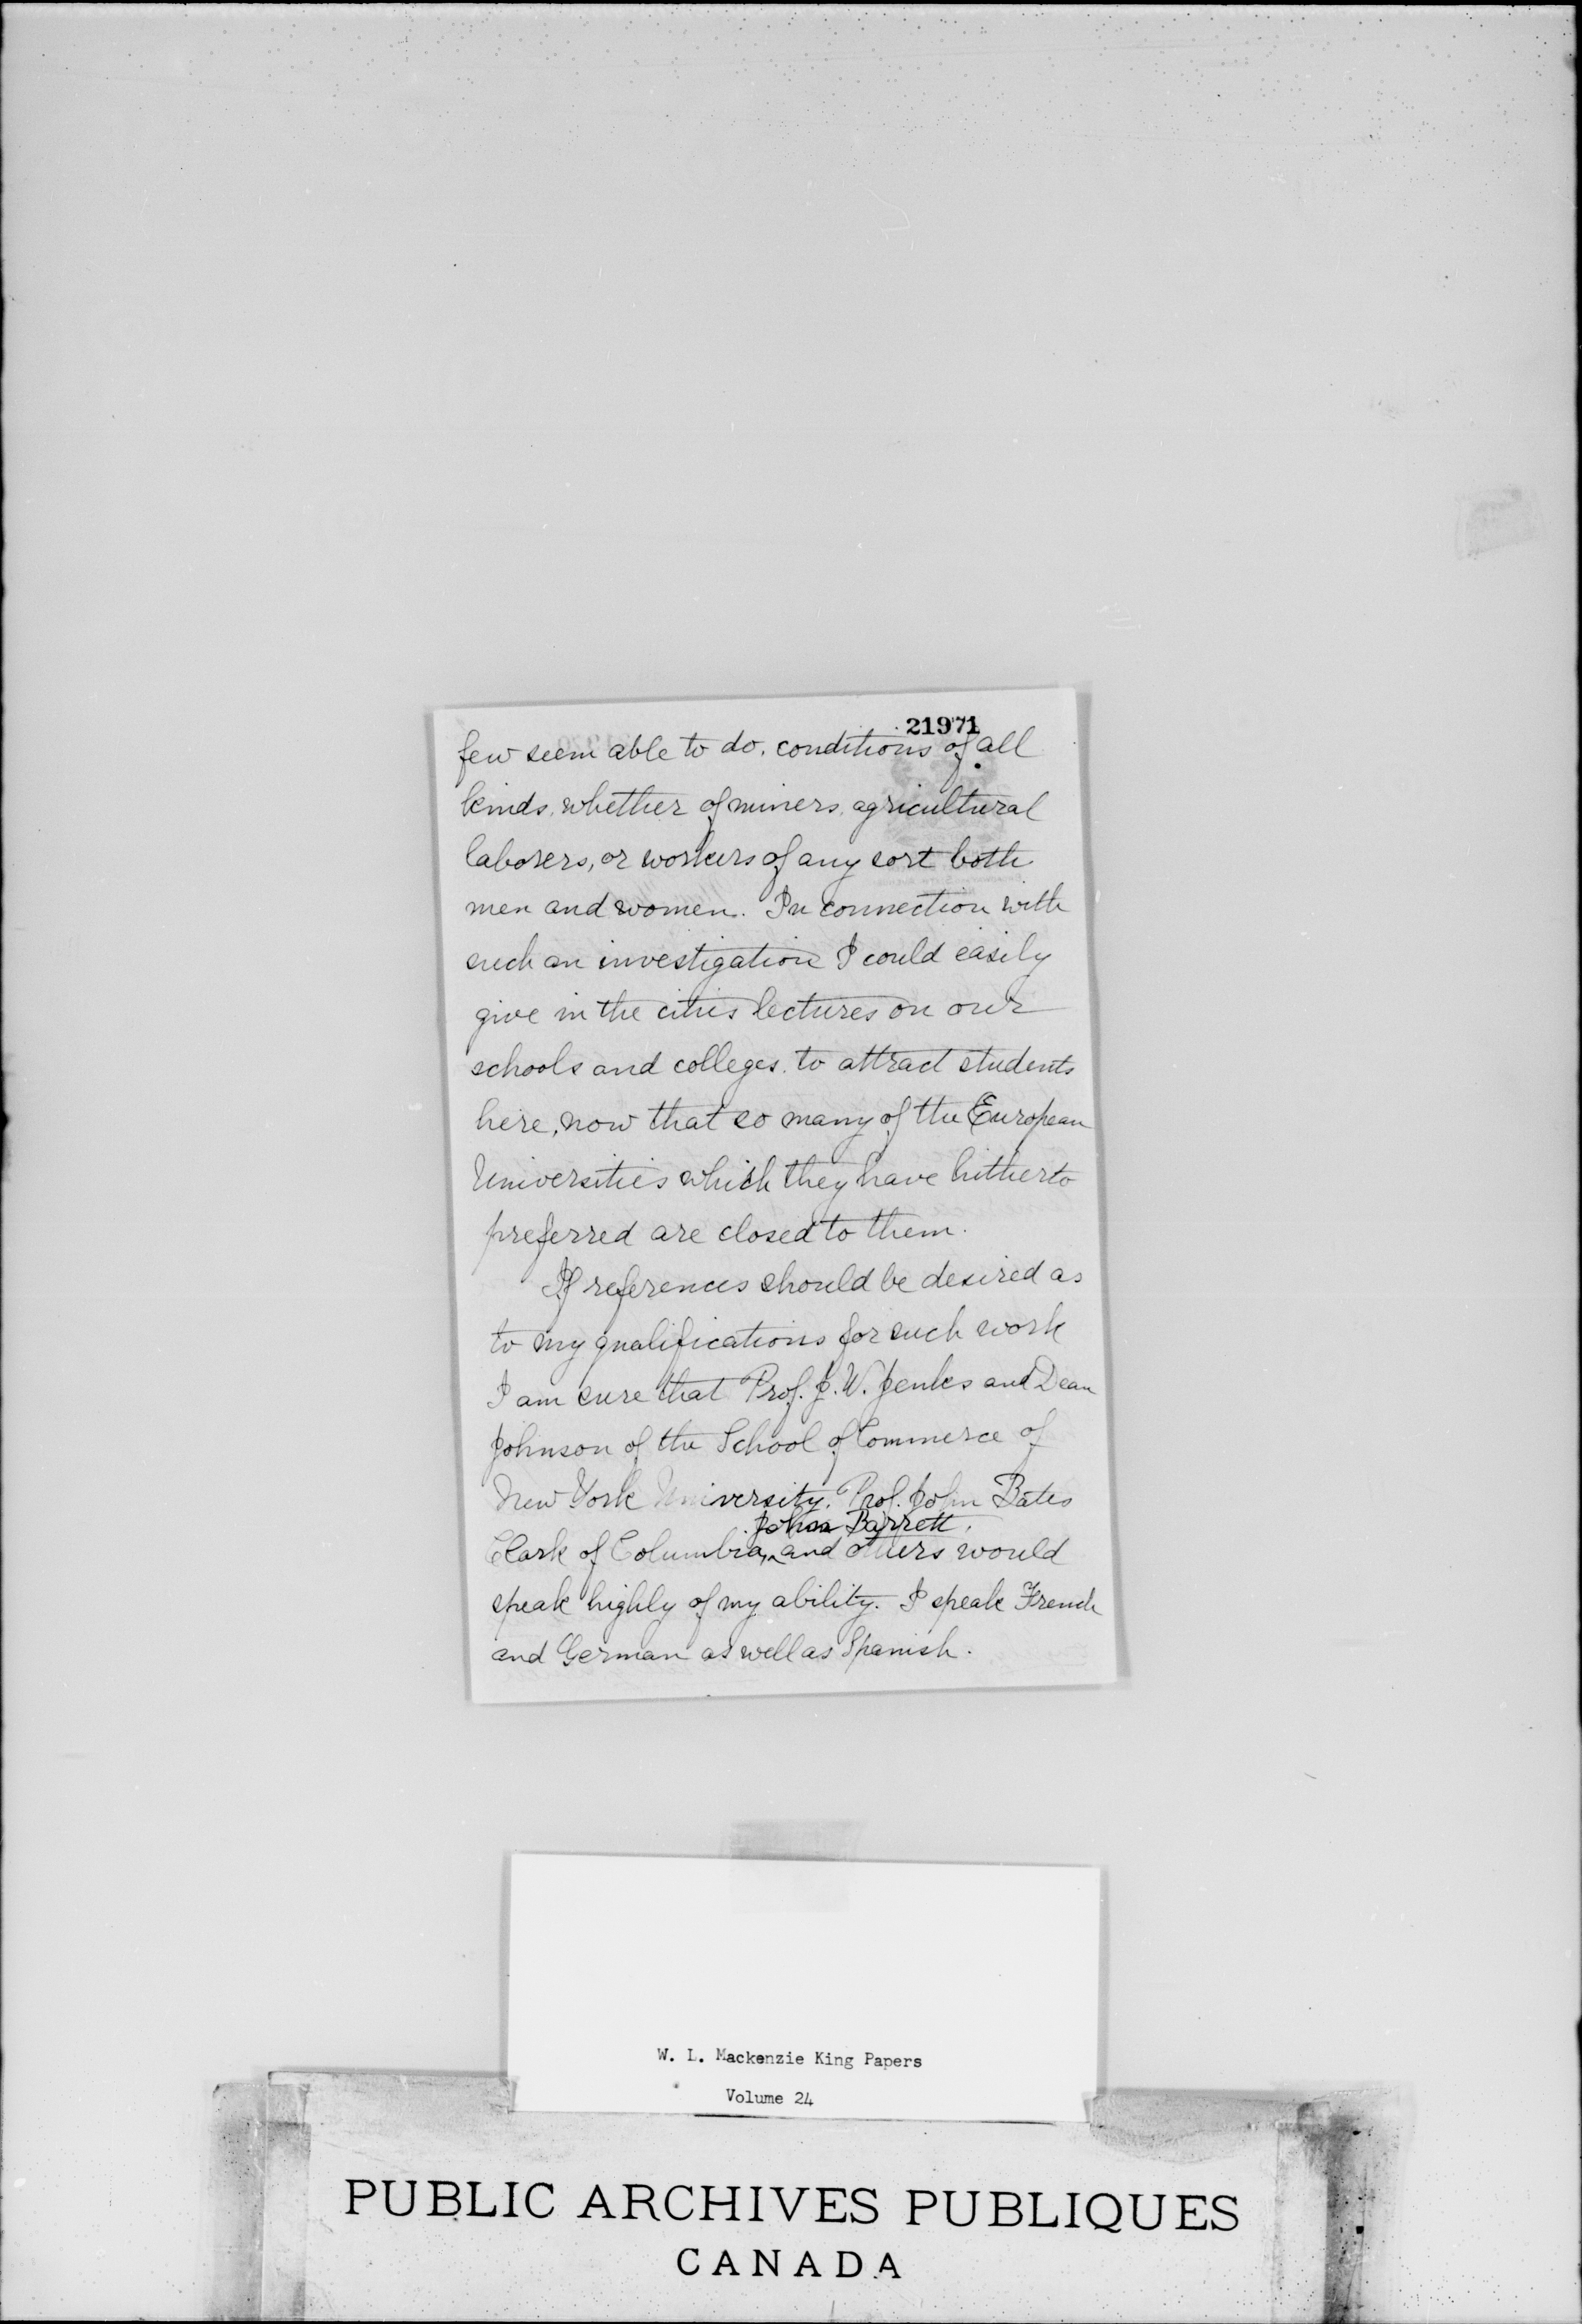 21971
few seem able to do, conditions of all
kinds, whether of miners, agricultural
laborers, or workers of any sort both
men and women. In connection with
such an investigation I could easily
give in the cities lectures on our
schools and colleges, to attract students
here, now that so many of the European
Universities which they have hitherto
preferred are closed to them.
If references should be desired as
to my qualifications for such work
I am sure that Prof. J. W. Jenks and Dean
Johnson of the School of Commerce of
New York University, Prof. John Bates
John Barrett,
Clark of Columbia, and others would
speak highly of my ability. I speak French
and German as well as Spanish.
W. L. Mackenzie King Papers
Volume 24
PUBLIC ARCHIVES PUBLIQUES
CANADA